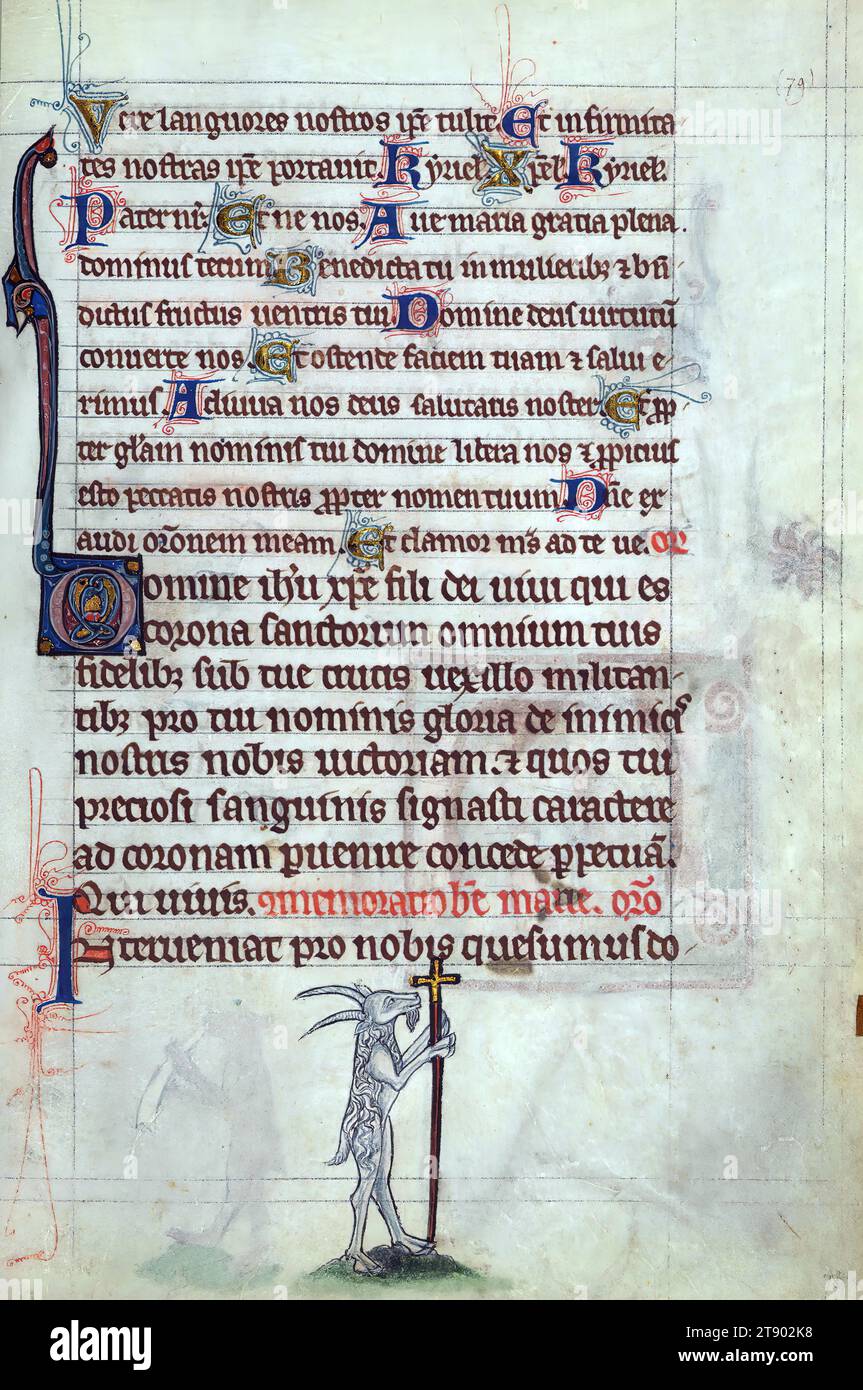 (79)
Vere languores nostros ip̄e tulit Et infirmita
tes nostras ip̄e portavit Kyriel̄ Xp̄el̄ Kyriel̄.
Pater nr̄. Et ne nos. Ave maria gratia plena.
dominus tecum Benedicta tu in mulieribꝫ ⁊ bn̄
dictus fructus ventris tui Domine deus virtutū
converte nos. Et ostende faciem tuam ⁊ salvi e
rimus. Adiuva nos deus salutaris noster Et ꝓp
ter gl̄am nominis tui domine libera nos ⁊ ꝓpicius
esto peccatis nostris ꝓpter nomen tuum Dn̄e ex
audi or̄onem meam. Et clamor ms̄ ad te ve. or
Domine ih̄u xp̄e fili dei vivi qui es
corona sanctorum omnium tuis
fidelibꝫ sub tue crucis vexillo militan
tibꝫ pro tui nominis gloria de inimicis
nostris nobis victoriam. ⁊ quos tui
preciosi sanguinis signasti caractere
ad coronam ꝑvenire concede ꝑpetuā.
Qui vivis. memoratio bē marie. or̄o
Interveniat pro nobis quesumus do
alamy
a
a
a
a
alamy
Image ID: 2T902K8
www.alamy.com